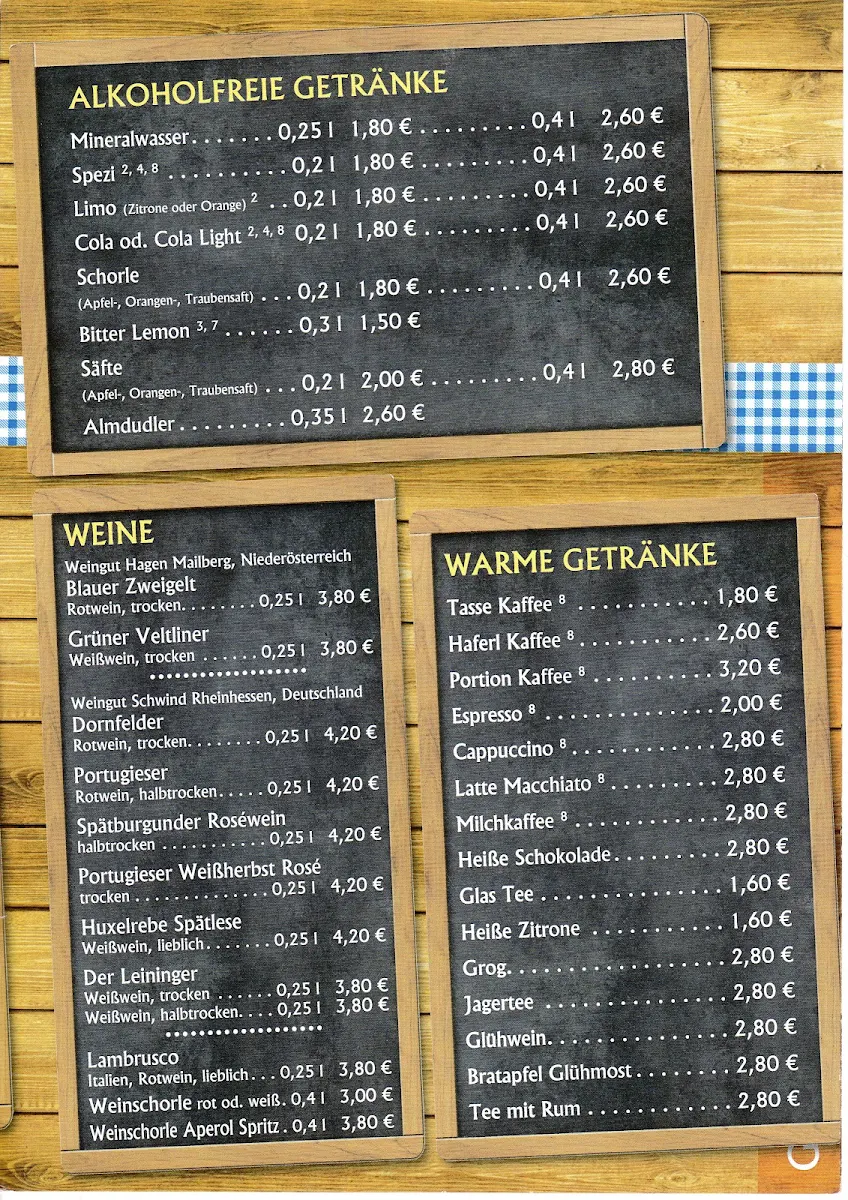 ALKOHOLFREIE GETRÄNKE
Mineralwasser.......0,25 l 1,80 €.........0,4 l 2,60 €
Spezi 2, 4, 8 ..........0,2 l 1,80 €.........0,4 l 2,60 €
Limo (Zitrone oder Orange) 2 ..0,2 l 1,80 €.........0,4 l 2,60 €
Cola od. Cola Light 2, 4, 8 0,2 l 1,80 €.........0,4 l 2,60 €
Schorle
(Apfel-, Orangen-, Traubensaft) ...0,2 l 1,80 €.........0,4 l 2,60 €
Bitter Lemon 3, 7 ......0,3 l 1,50 €
Säfte
(Apfel-, Orangen-, Traubensaft) ...0,2 l 2,00 €.........0,4 l 2,80 €
Almdudler.........0,35 l 2,60 €
WEINE
Weingut Hagen Mailberg, Niederösterreich
Blauer Zweigelt
Rotwein, trocken........0,25 l 3,80 €
Grüner Veltliner
Weißwein, trocken ......0,25 l 3,80 €
Weingut Schwind Rheinhessen, Deutschland
Dornfelder
Rotwein, trocken........0,25 l 4,20 €
Portugieser
Rotwein, halbtrocken.....0,25 l 4,20 €
Spätburgunder Roséwein
halbtrocken ...........0,25 l 4,20 €
Portugieser Weißherbst Rosé
trocken ..............0,25 l 4,20 €
Huxelrebe Spätlese
Weißwein, lieblich.......0,25 l 4,20 €
Der Leininger
Weißwein, trocken ......0,25 l 3,80 €
Weißwein, halbtrocken....0,25 l 3,80 €
Lambrusco
Italien, Rotwein, lieblich...0,25 l 3,80 €
Weinschorle rot od. weiß.0,4 l 3,00 €
Weinschorle Aperol Spritz.0,4 l 3,80 €
WARME GETRÄNKE
Tasse Kaffee 8 ...........1,80 €
Haferl Kaffee 8...........2,60 €
Portion Kaffee 8 ..........3,20 €
Espresso 8 ..............2,00 €
Cappuccino 8............2,80 €
Latte Macchiato 8.........2,80 €
Milchkaffee 8............2,80 €
Heiße Schokolade.........2,80 €
Glas Tee ................1,60 €
Heiße Zitrone ............1,60 €
Grog..................2,80 €
Jagertee ...............2,80 €
Glühwein...............2,80 €
Bratapfel Glühmost........2,80 €
Tee mit Rum ............2,80 €